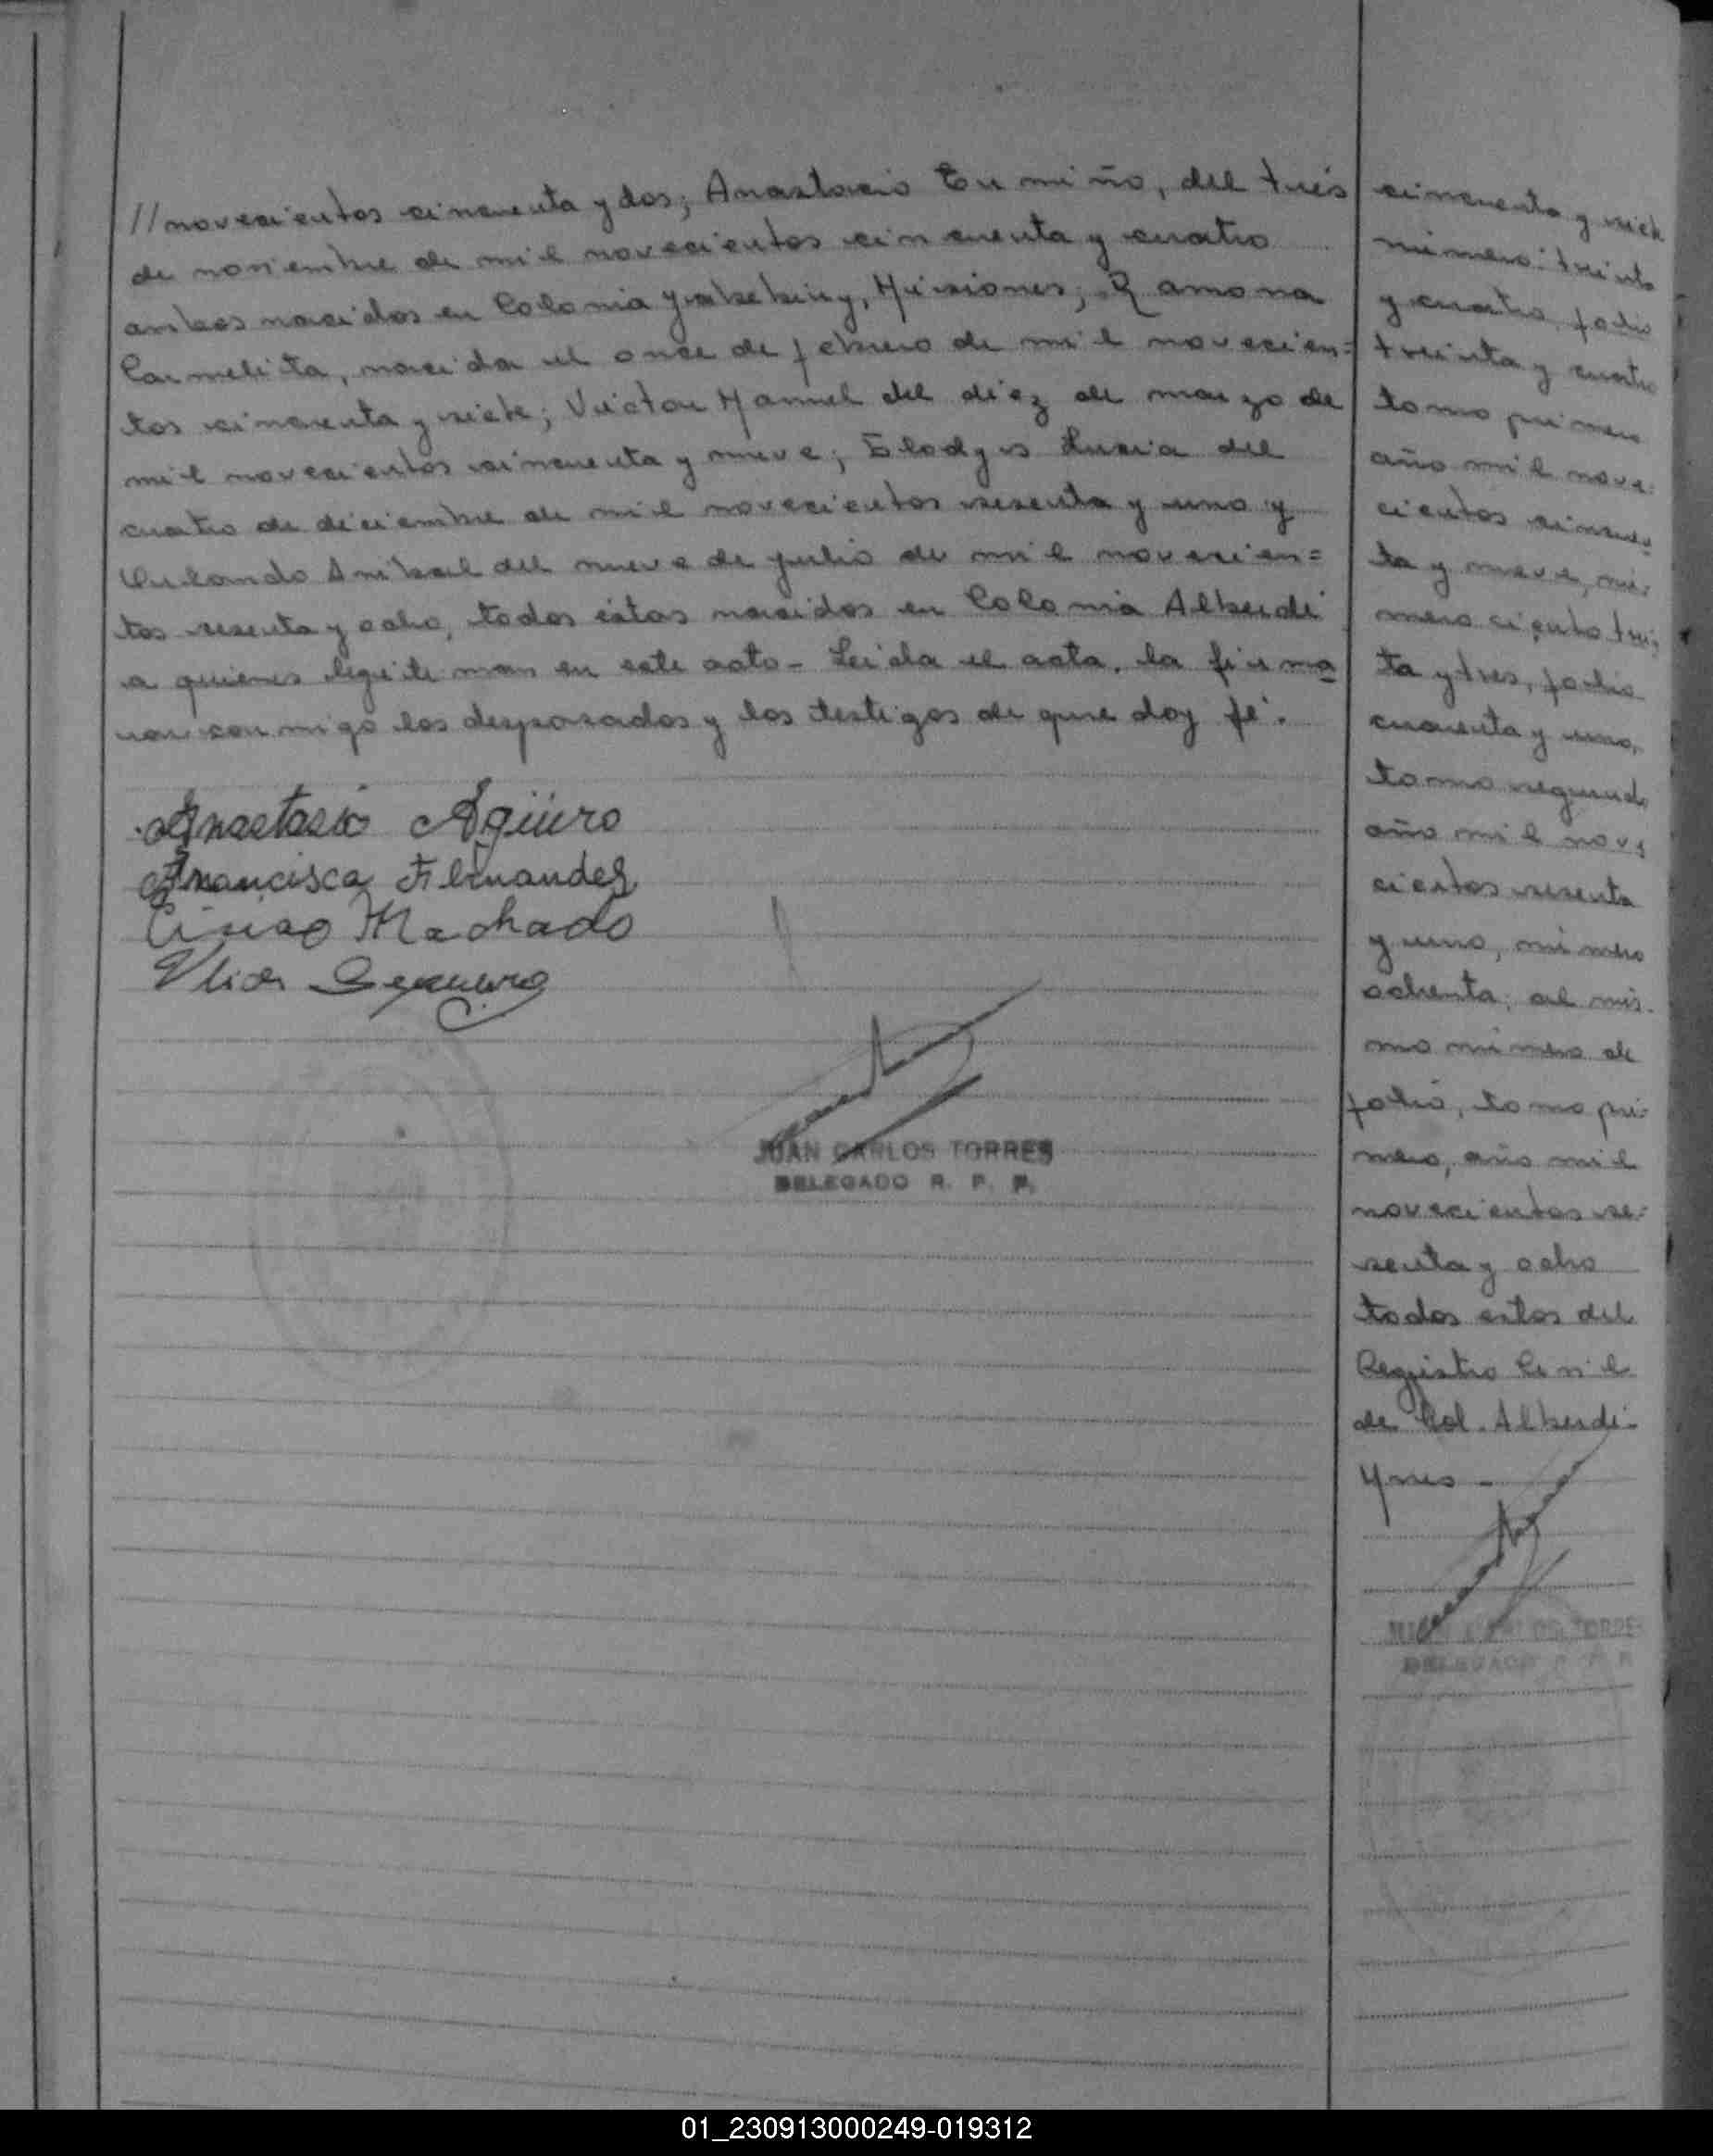 //novecientos cincuenta y dos; Anastacio Eu miño, del tres
de noviembre de mil novecientos cincuenta y cuatro
ambos nacidos en Colonia Yabebiry, Misiones; Ramona
Carmelita, nacida el once de febrero de mil novecien=
tos cincuenta y siete; Victor Manuel del diez de marzo de
mil novecientos cincuenta y nueve; Elodys Lucia del
cuatro de diciembre de mil novecientos sesenta y uno y
Orlando Anibal del nueve de julio de mil novecien=
tos sesenta y ocho, todos éstos nacidos en Colonia Alberdi
a quienes legitiman en este acto - Leida el acta, la firma
ron conmigo los desposados y los testigos de que doy fé.
Anastasio Agüero
Francisca Fernandez
Machado
JUAN CARLOS TORRES
DELEGADO R. P. P.
cincuenta y siete
número: treinta
y cuatro, folio
treinta y cuatro
tomo primero
año mil nove=
cientos cincuen
ta y nueve, nú=
mero ciento trein
ta y tres, folio
cuarenta y uno,
tomo segundo
año mil nove
cientos sesenta
y uno, número
ochenta, al mis-
mo número de
folio, tomo pri=
mero, año mil
novecientos se=
senta y ocho
todos estos del
Registro Civil
de Col. Alberdi-
JUAN CARLOS TORRES
DELEGADO R. P. P.
01_230913000249-019312